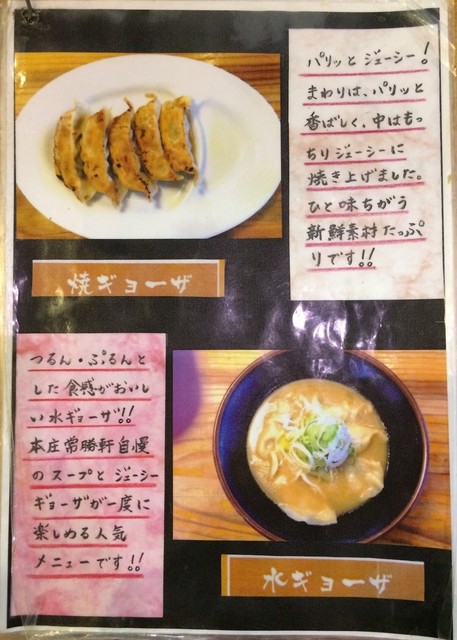 パリッと ジューシー!
まわりは、パリッと
香ばしく、中はもっ
ちりジューシーに
焼き上げました。
ひと味ちがう
新鮮素材たっぷ
りです!!
焼ギョーザ
つるん・ぷるんと
した食感がおいし
い水ギョーザ!!
本庄常勝軒自慢
のスープと ジューシー
ギョーザが一度に
楽しめる人気
メニューです!!
水ギョーザ